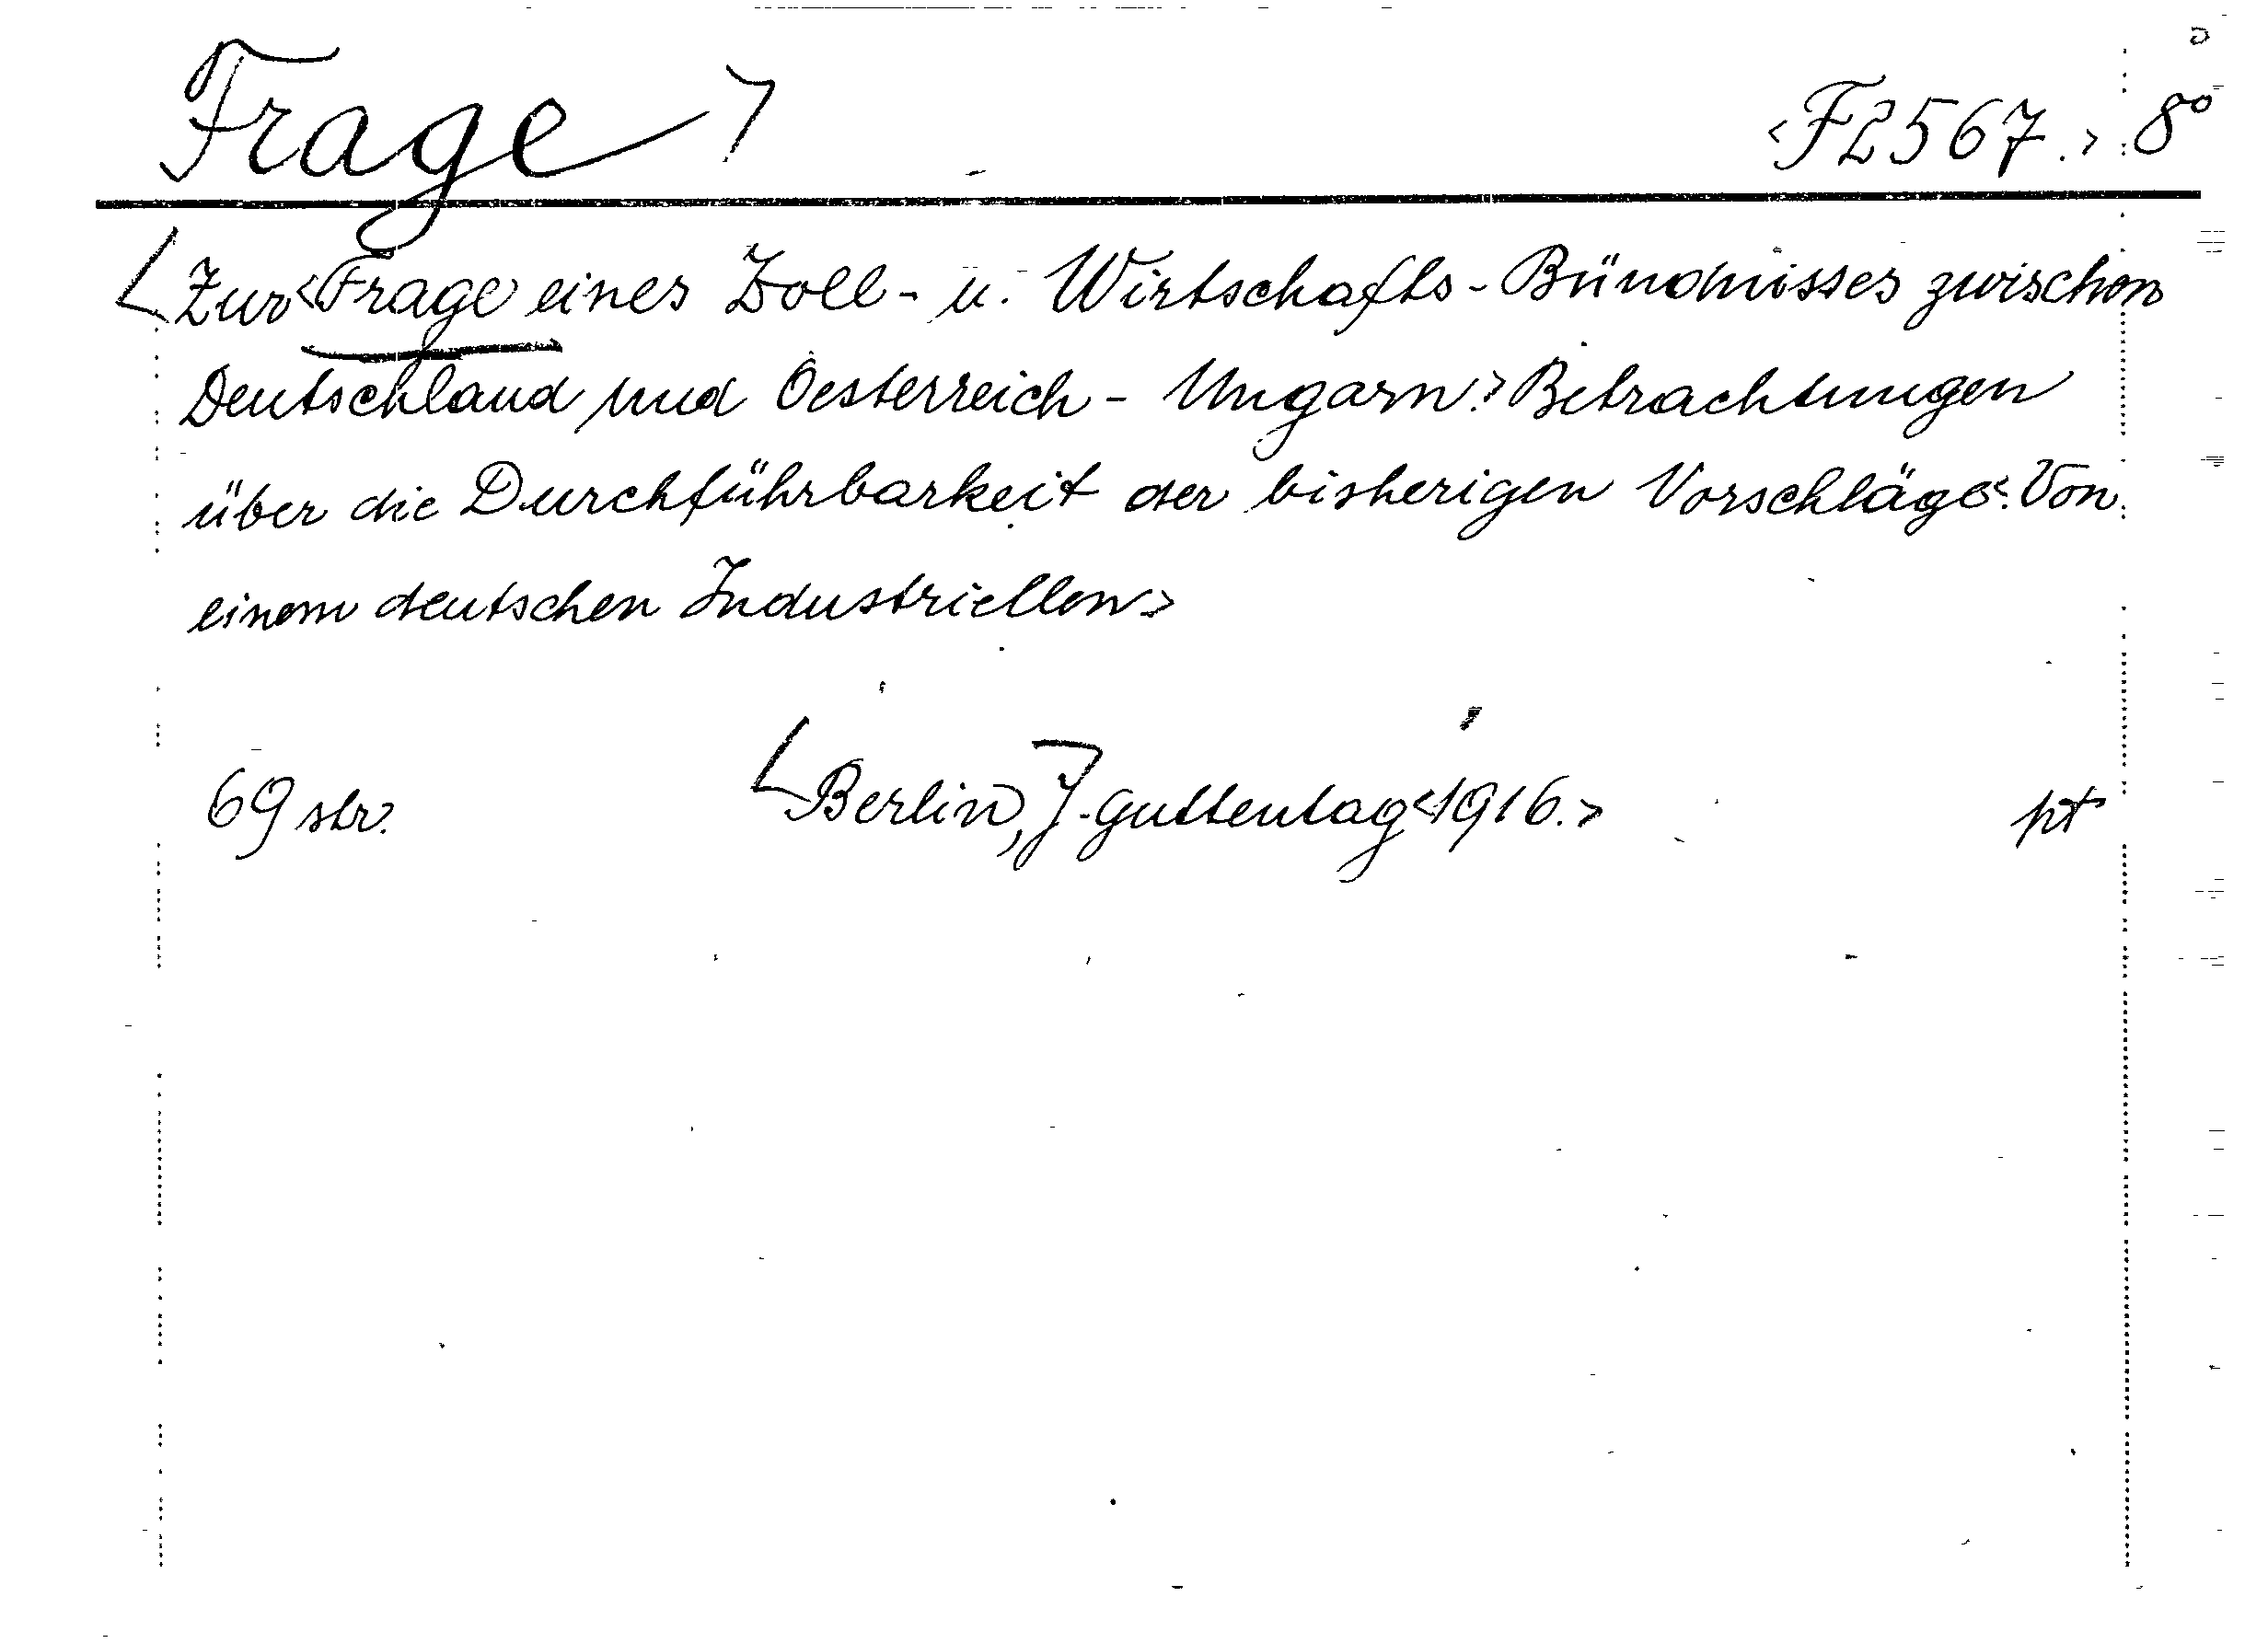 Frage ⌉ <F2567.> 8°
⌊Zur <Frage eines Zoll- u. Wirtschafts-Bündnisses zwischen
Deutschland und Oesterreich-Ungarn.> Betrachtungen
über die Durchführbarkeit der bisherigen Vorschläge<. Von
einem deutschen Industriellen>
69 str. ⌊Berlin, J. Guttentag <1916.> pt